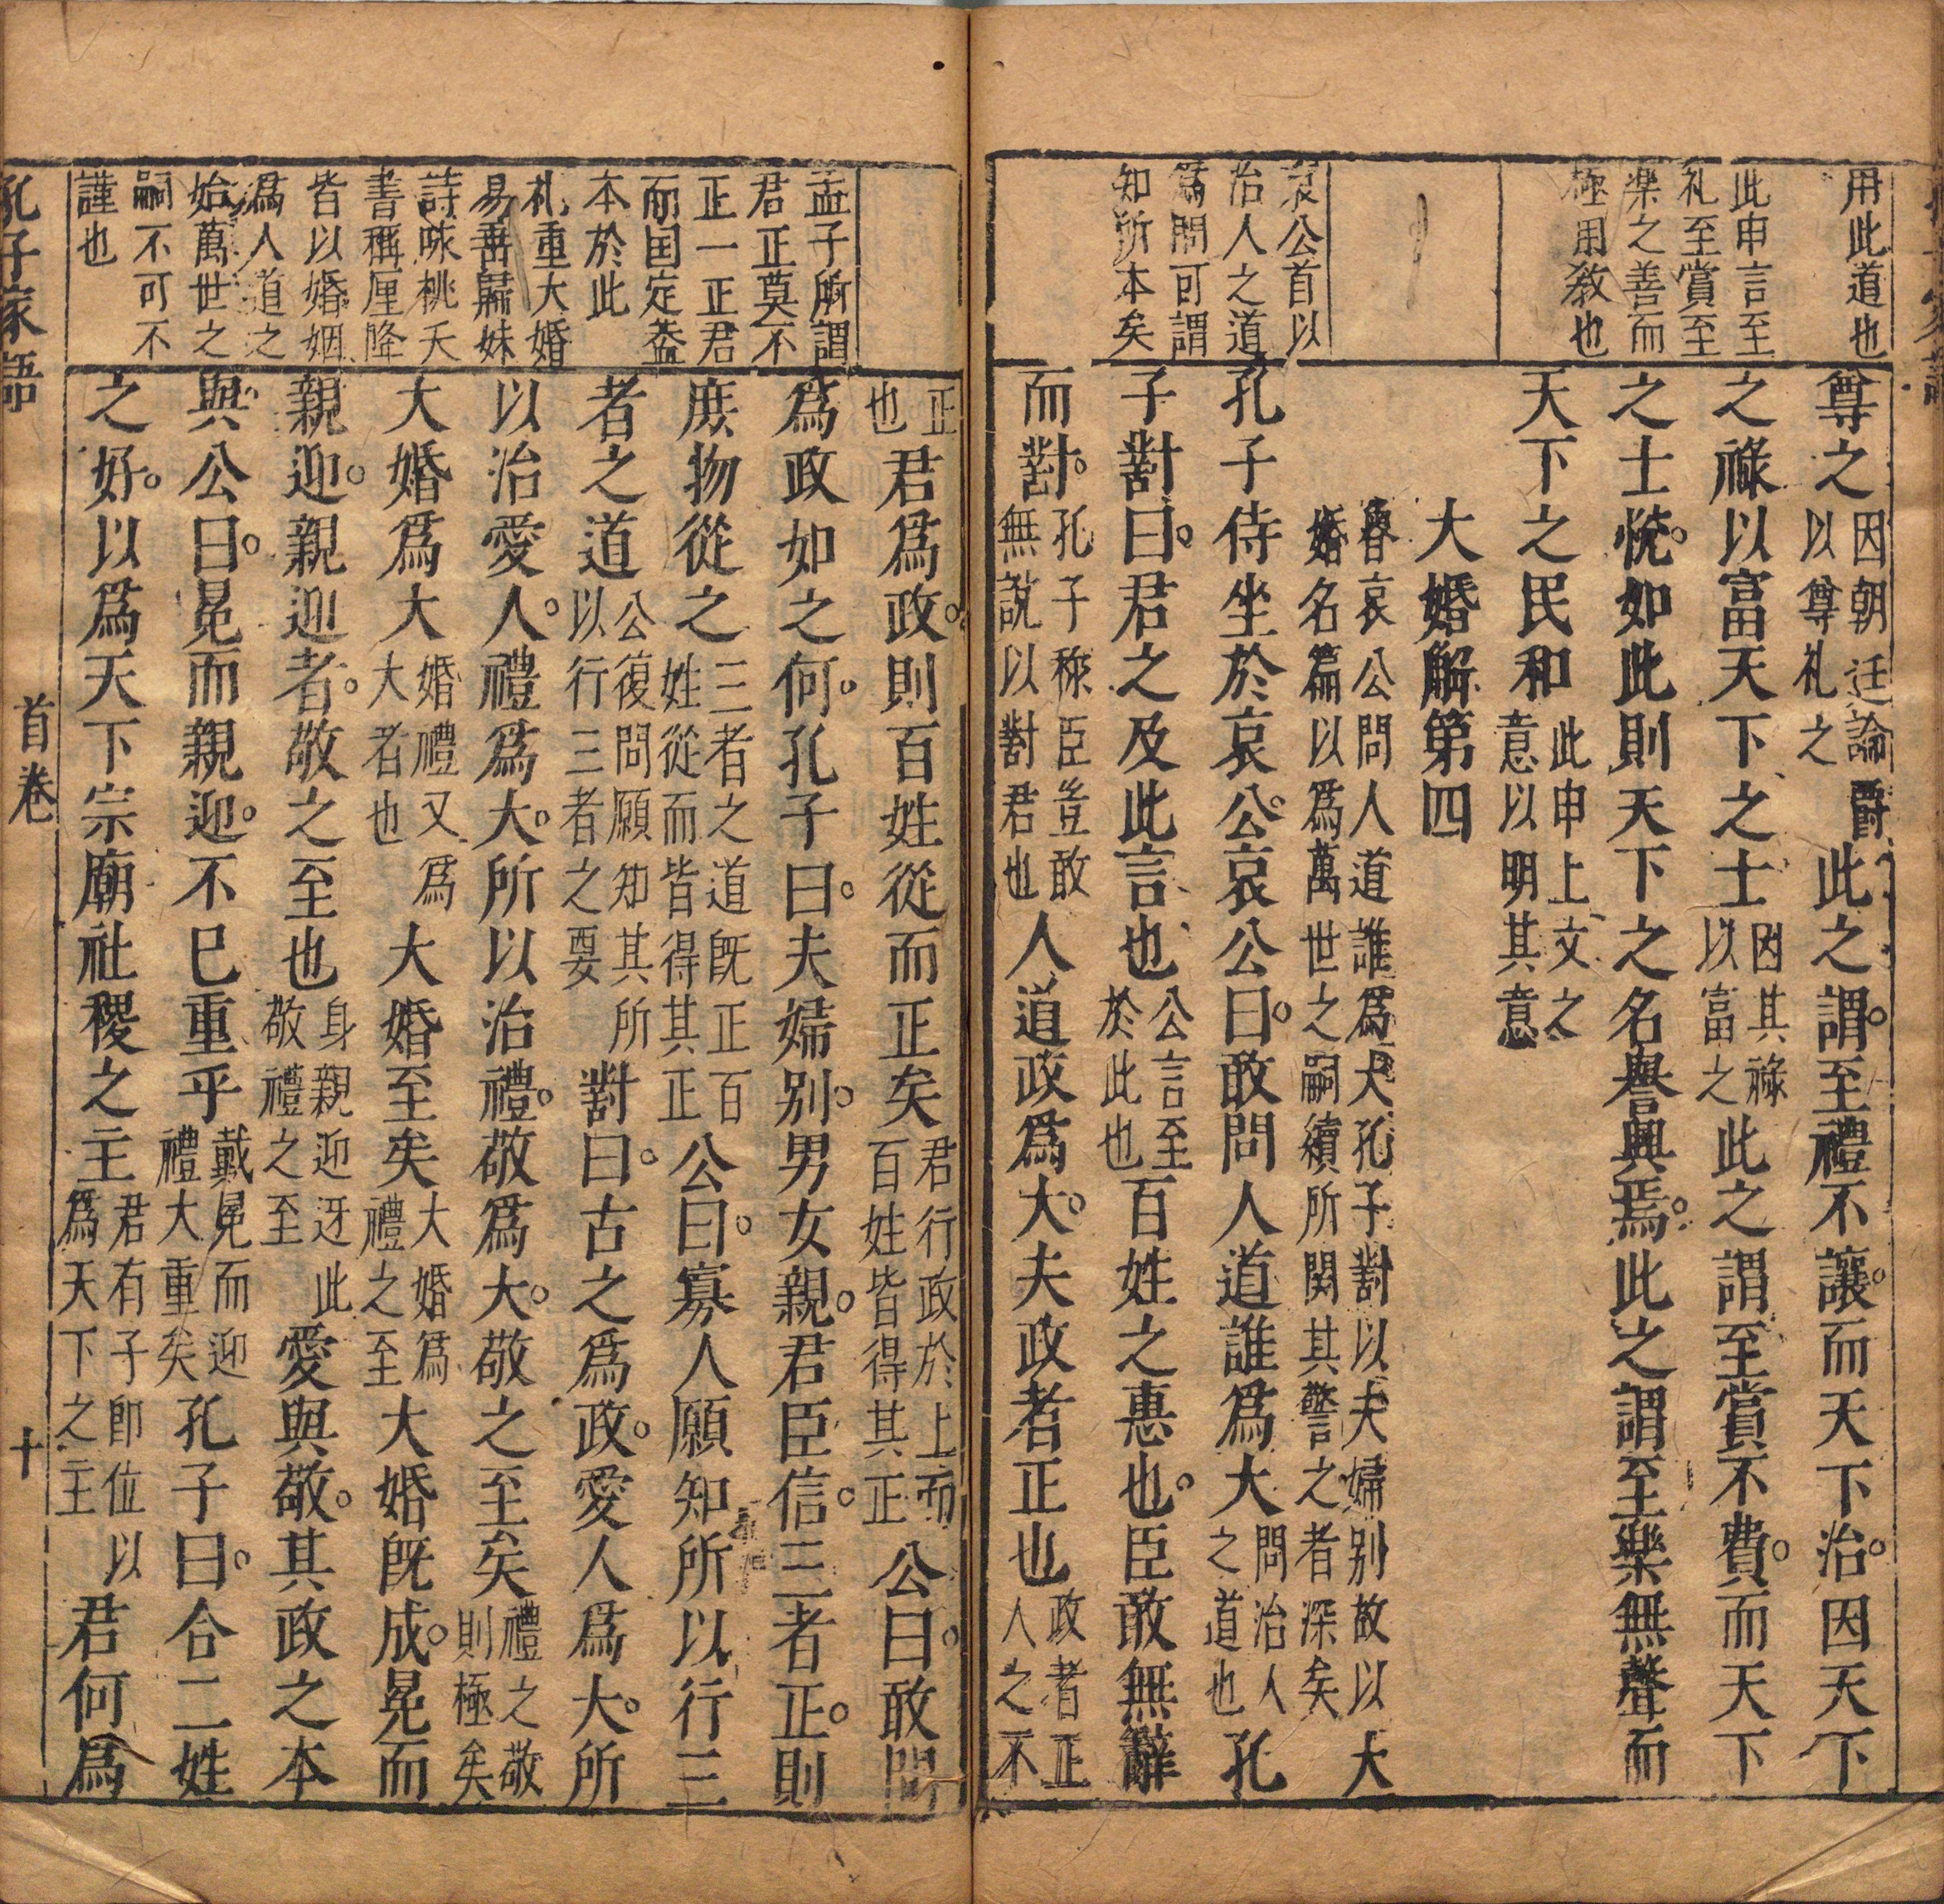 用此道也
此申言至
礼至賞至
樂之善而
極用教也
哀公首以
治人之道
爲問可謂
知所本矣
尊之因朝廷論爵以尊礼之此之謂。至禮不讓。而天下治。因天下
之祿以富天下之士因其祿以富之此之謂至賞不費。而天下
之士悅。如此則天下之名譽興焉。此之謂至樂無聲而
天下之民和此申上文之意以明其意
大婚解第四
哀公問人道誰爲大孔子對以夫婦别故以大
婚名篇以爲萬世之嗣續所関其警之者深矣
孔子侍坐於哀公。哀公曰。敢問人道誰爲大問治人之道也孔
子對曰。君之及此言也公言至於此也百姓之惠也。臣敢無辭
而對。孔子称臣豈敢無說以對君也人道政爲大。夫政者正也政者正人之不
孟子所謂
君正莫不
正一正君
而国定葢
本於此
礼重大婚
易著歸妹
詩咏桃夭
書稱厘降
皆以婚姻
爲人道之
始萬世之
嗣不可不
謹也
正也君爲政。則百姓從而正矣君行政於上而百姓皆得其正公曰。敢問
爲政如之何。孔子曰。夫婦别。男女親。君臣信。三者正。則
庶物從之三者之道既正百姓從而皆得其正公曰。寡人願知所以行三
者之道公復問願知其所以行三者之要對曰。古之爲政。愛人爲大。所
以治愛人。禮爲大。所以治禮。敬爲大。敬之至矣禮之敬則極矣
大婚爲大婚禮又爲大者也大婚至矣大婚爲禮之至大婚既成。冕而
親迎。親迎者。敬之至也身親迎迓此敬禮之至愛與敬。其政之本
與公曰。冕而親迎。不已重乎戴冕而迎禮大重矣孔子曰。合二姓
之好。以爲天下宗廟社稷之主君有子即位以爲天下之主君何爲
孔子家語
首卷
十